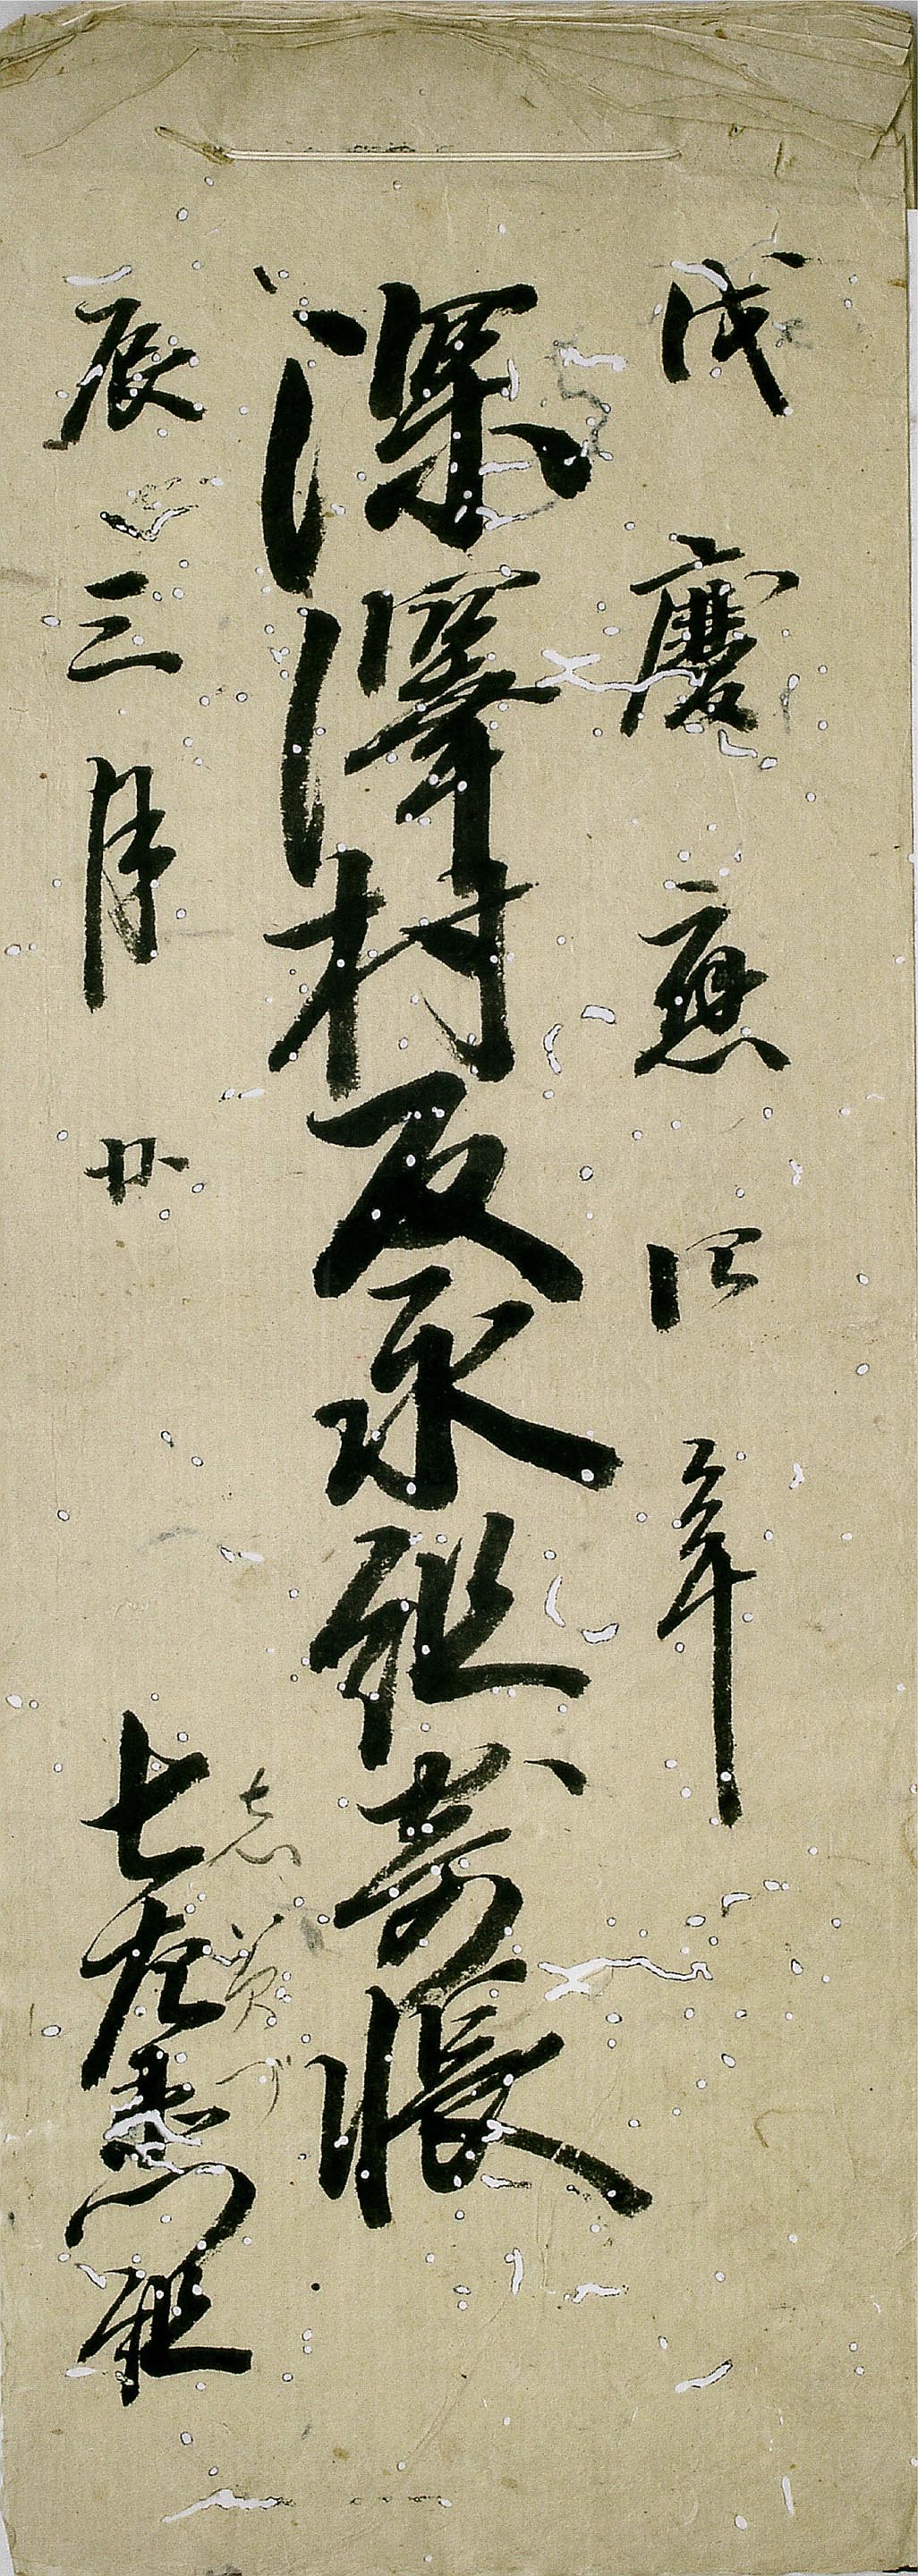 戊慶應四年
深澤村反永組寄帳
辰三月廿
七左衛門組